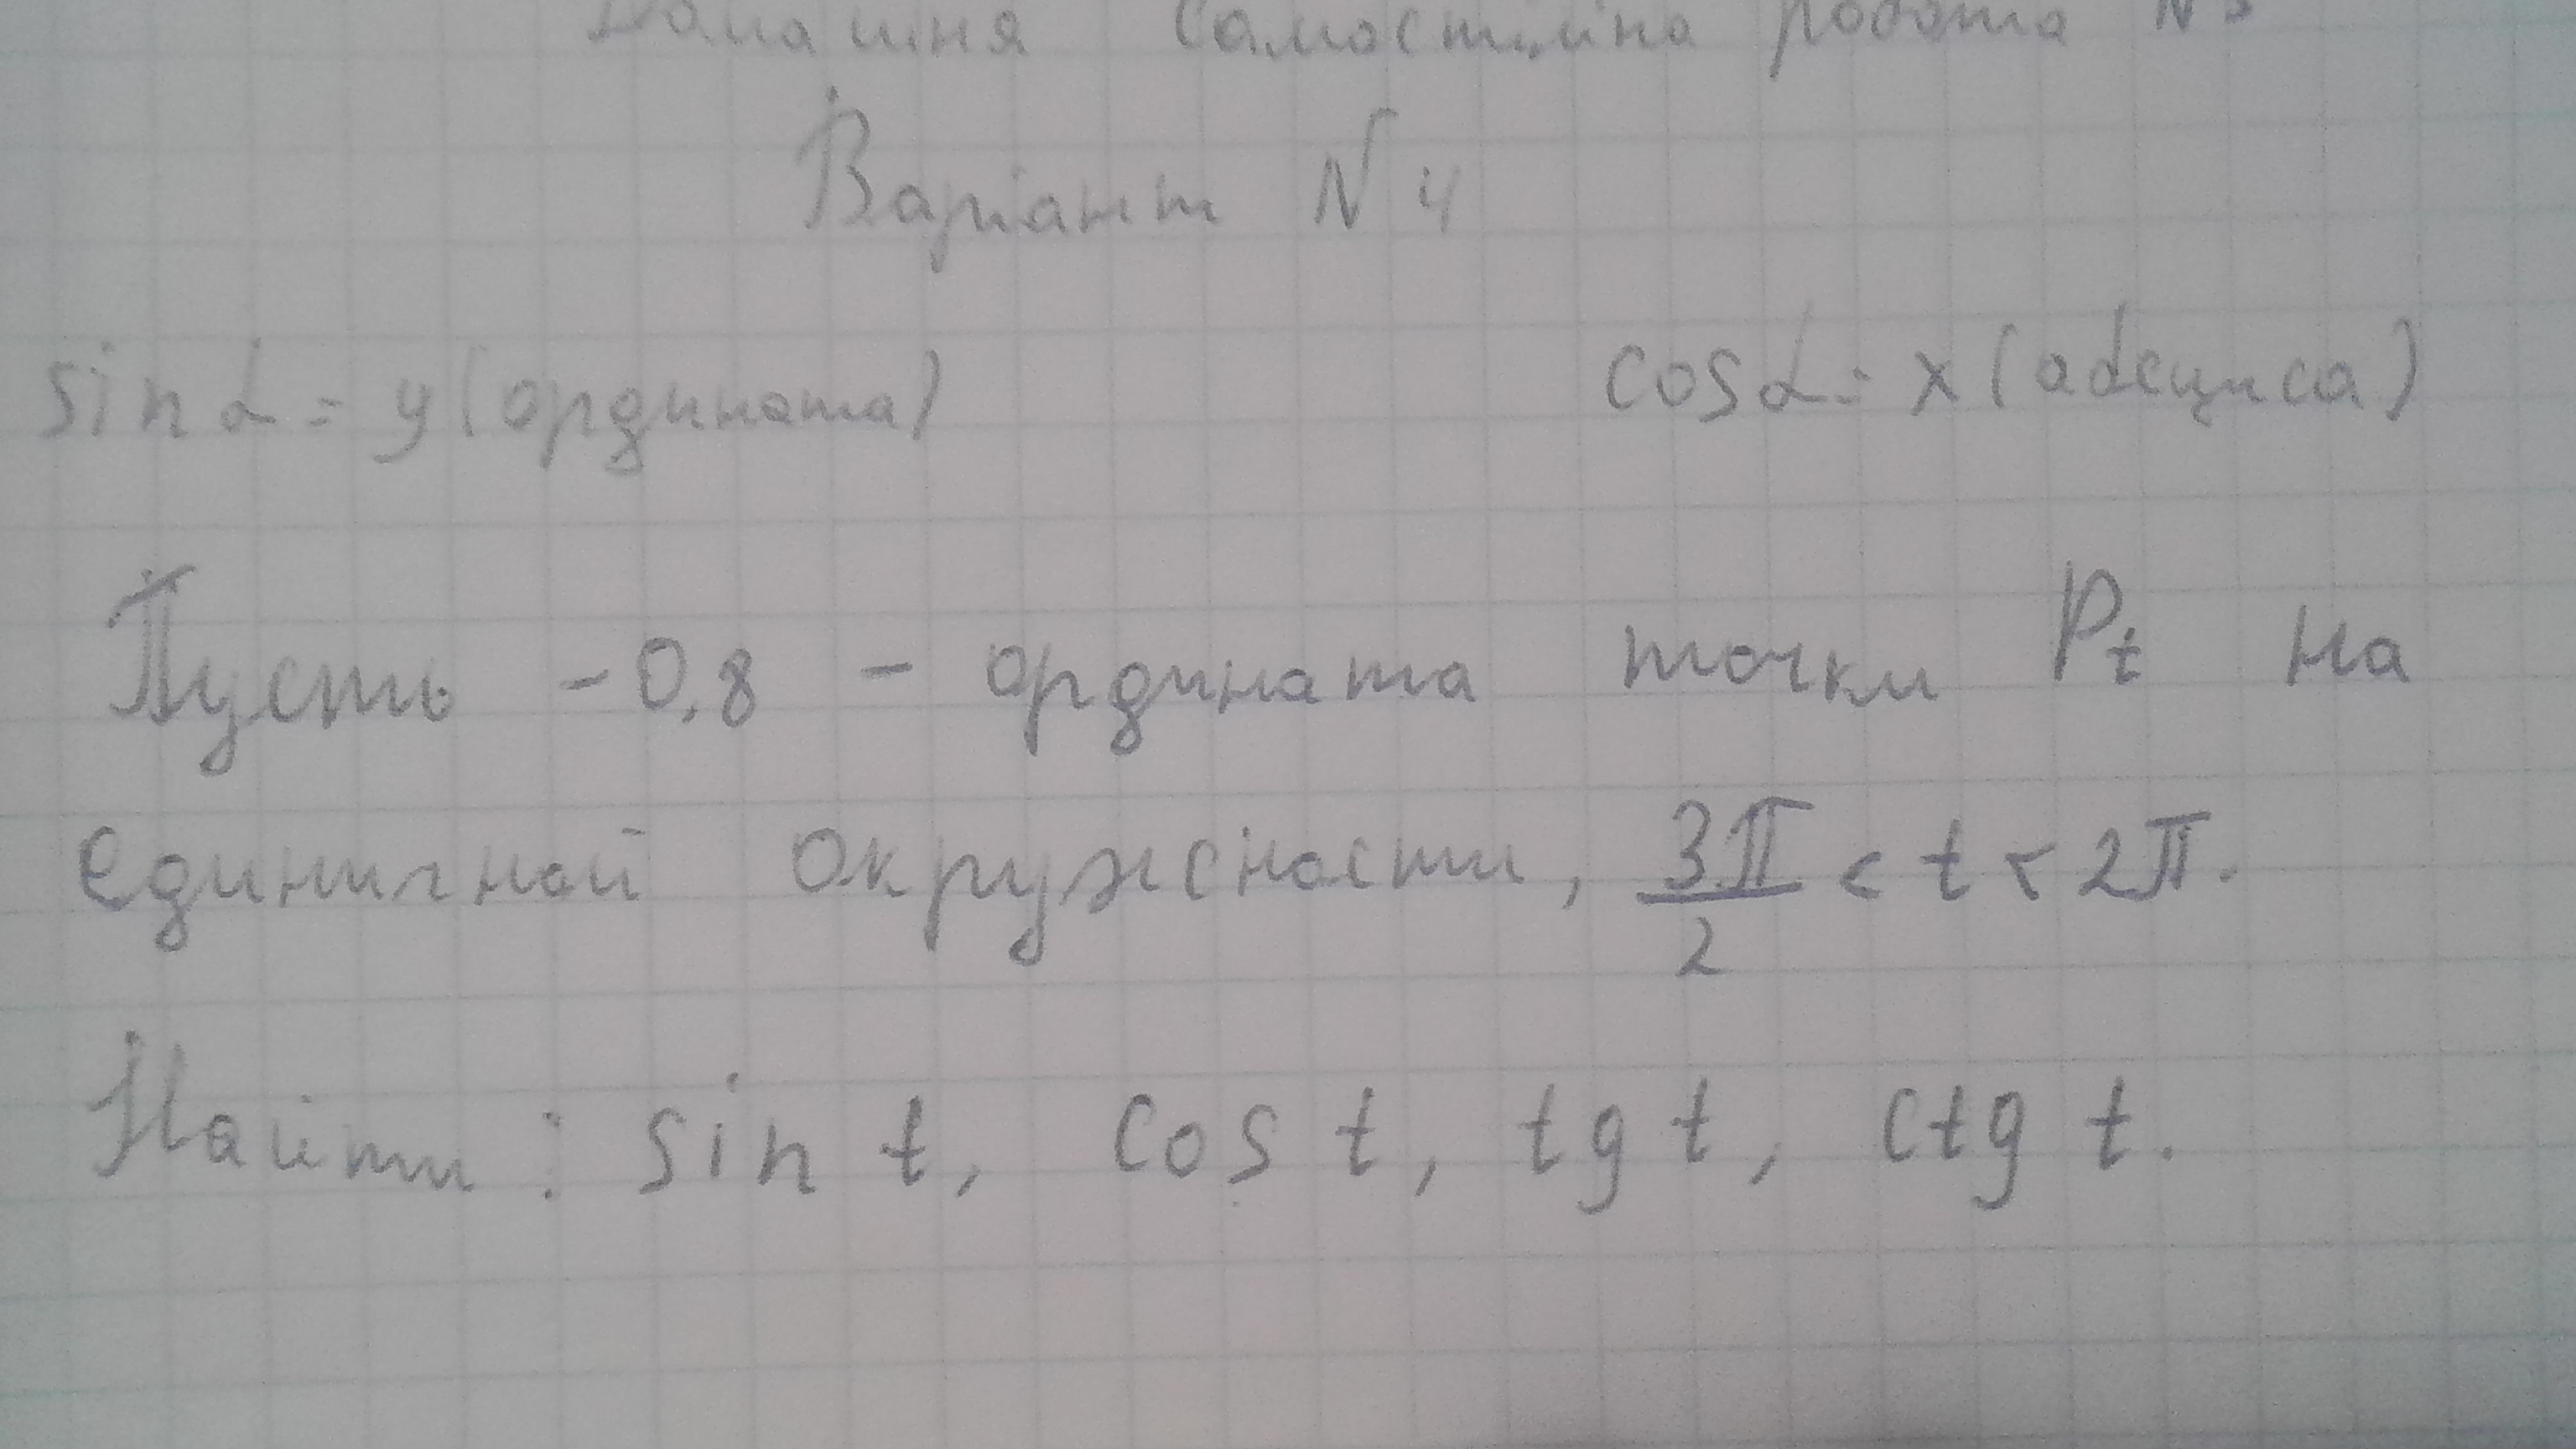 Домашня самостійна робота №3
Варіант N 4
sin α = y (ордината) cos α = x (абсциса)
Пусть -0,8 - ордината точки Pt на
единичной окружности, 3π/2 < t < 2π.
Найти: sin t, cos t, tg t, ctg t.